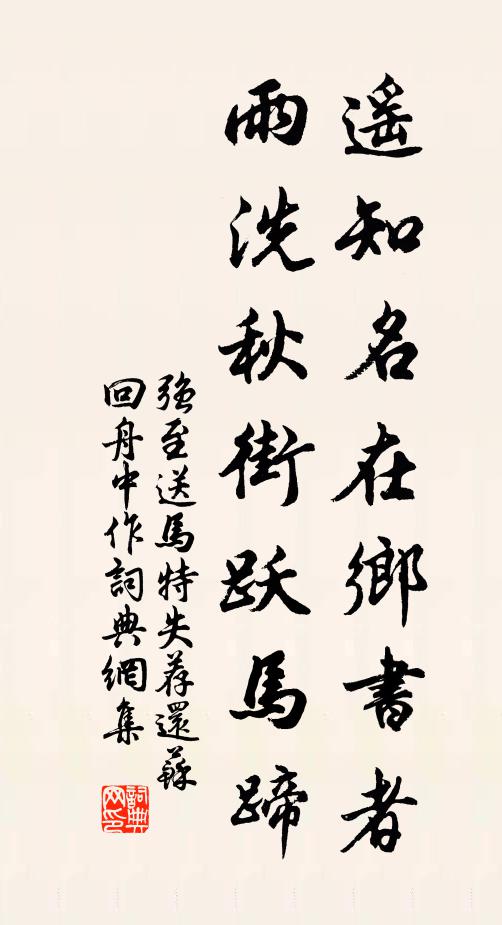 遥知名在鄉書者
雨洗秋街跃馬蹄
强至送馬特失荐還蘇
回舟中作詞典網集
詞典网印